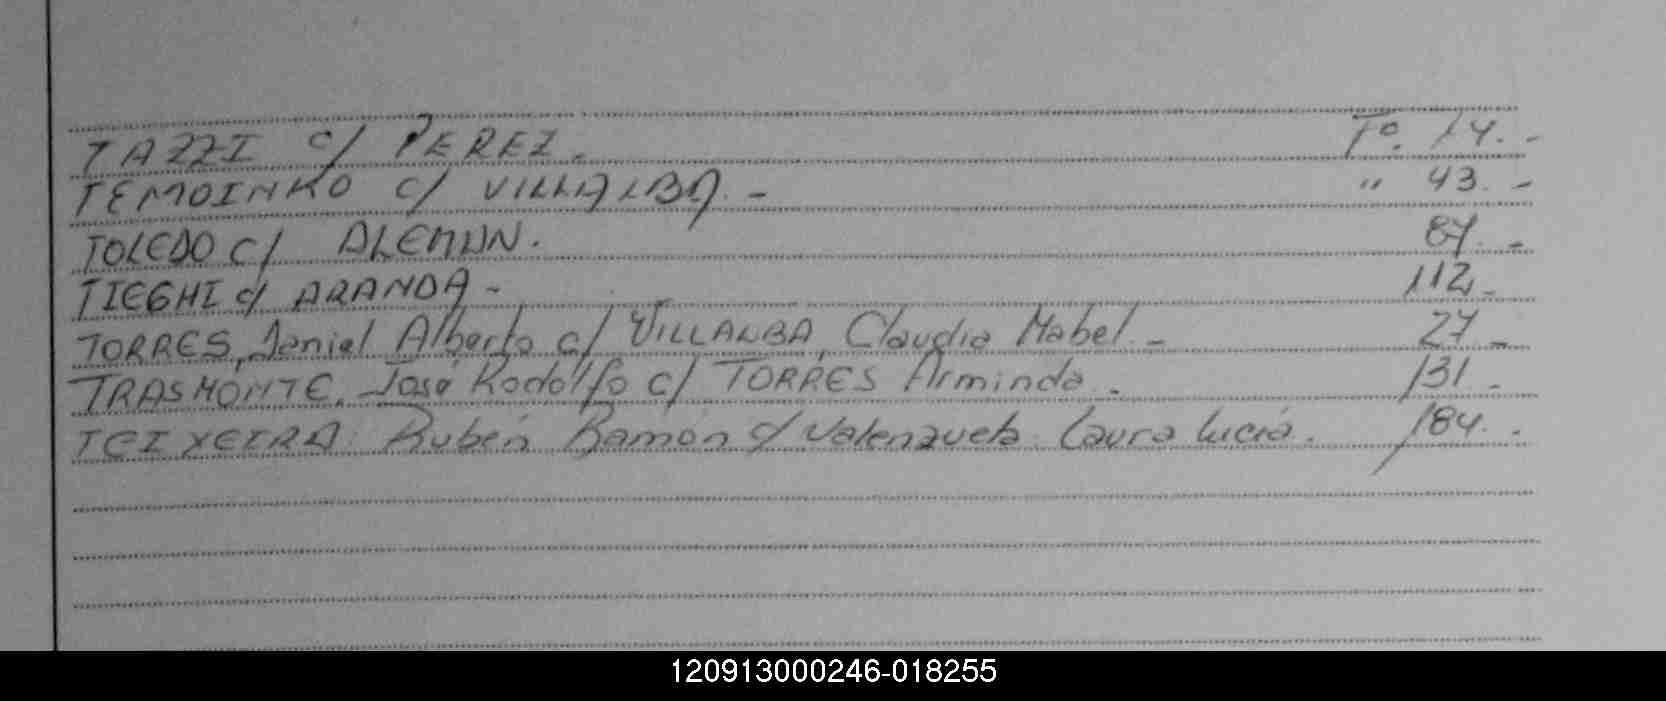 TAZZI c/ PEREZ. Fº. 14. -
TEMOINKO c/ VILLALBA. - " 43. -
TOLEDO c/ ALEMAN. 87. -
TIEGHI c/ ARANDA - 112. -
TORRES, Daniel Alberto c/ VILLALBA, Claudia Mabel. - 27 -
TRASMONTE, José Rodolfo c/ TORRES Arminda. 131 -
TEIXEIRA: Rubén Ramón c/ Valenzuela: Laura Lucía. 184. -
120913000246-018255